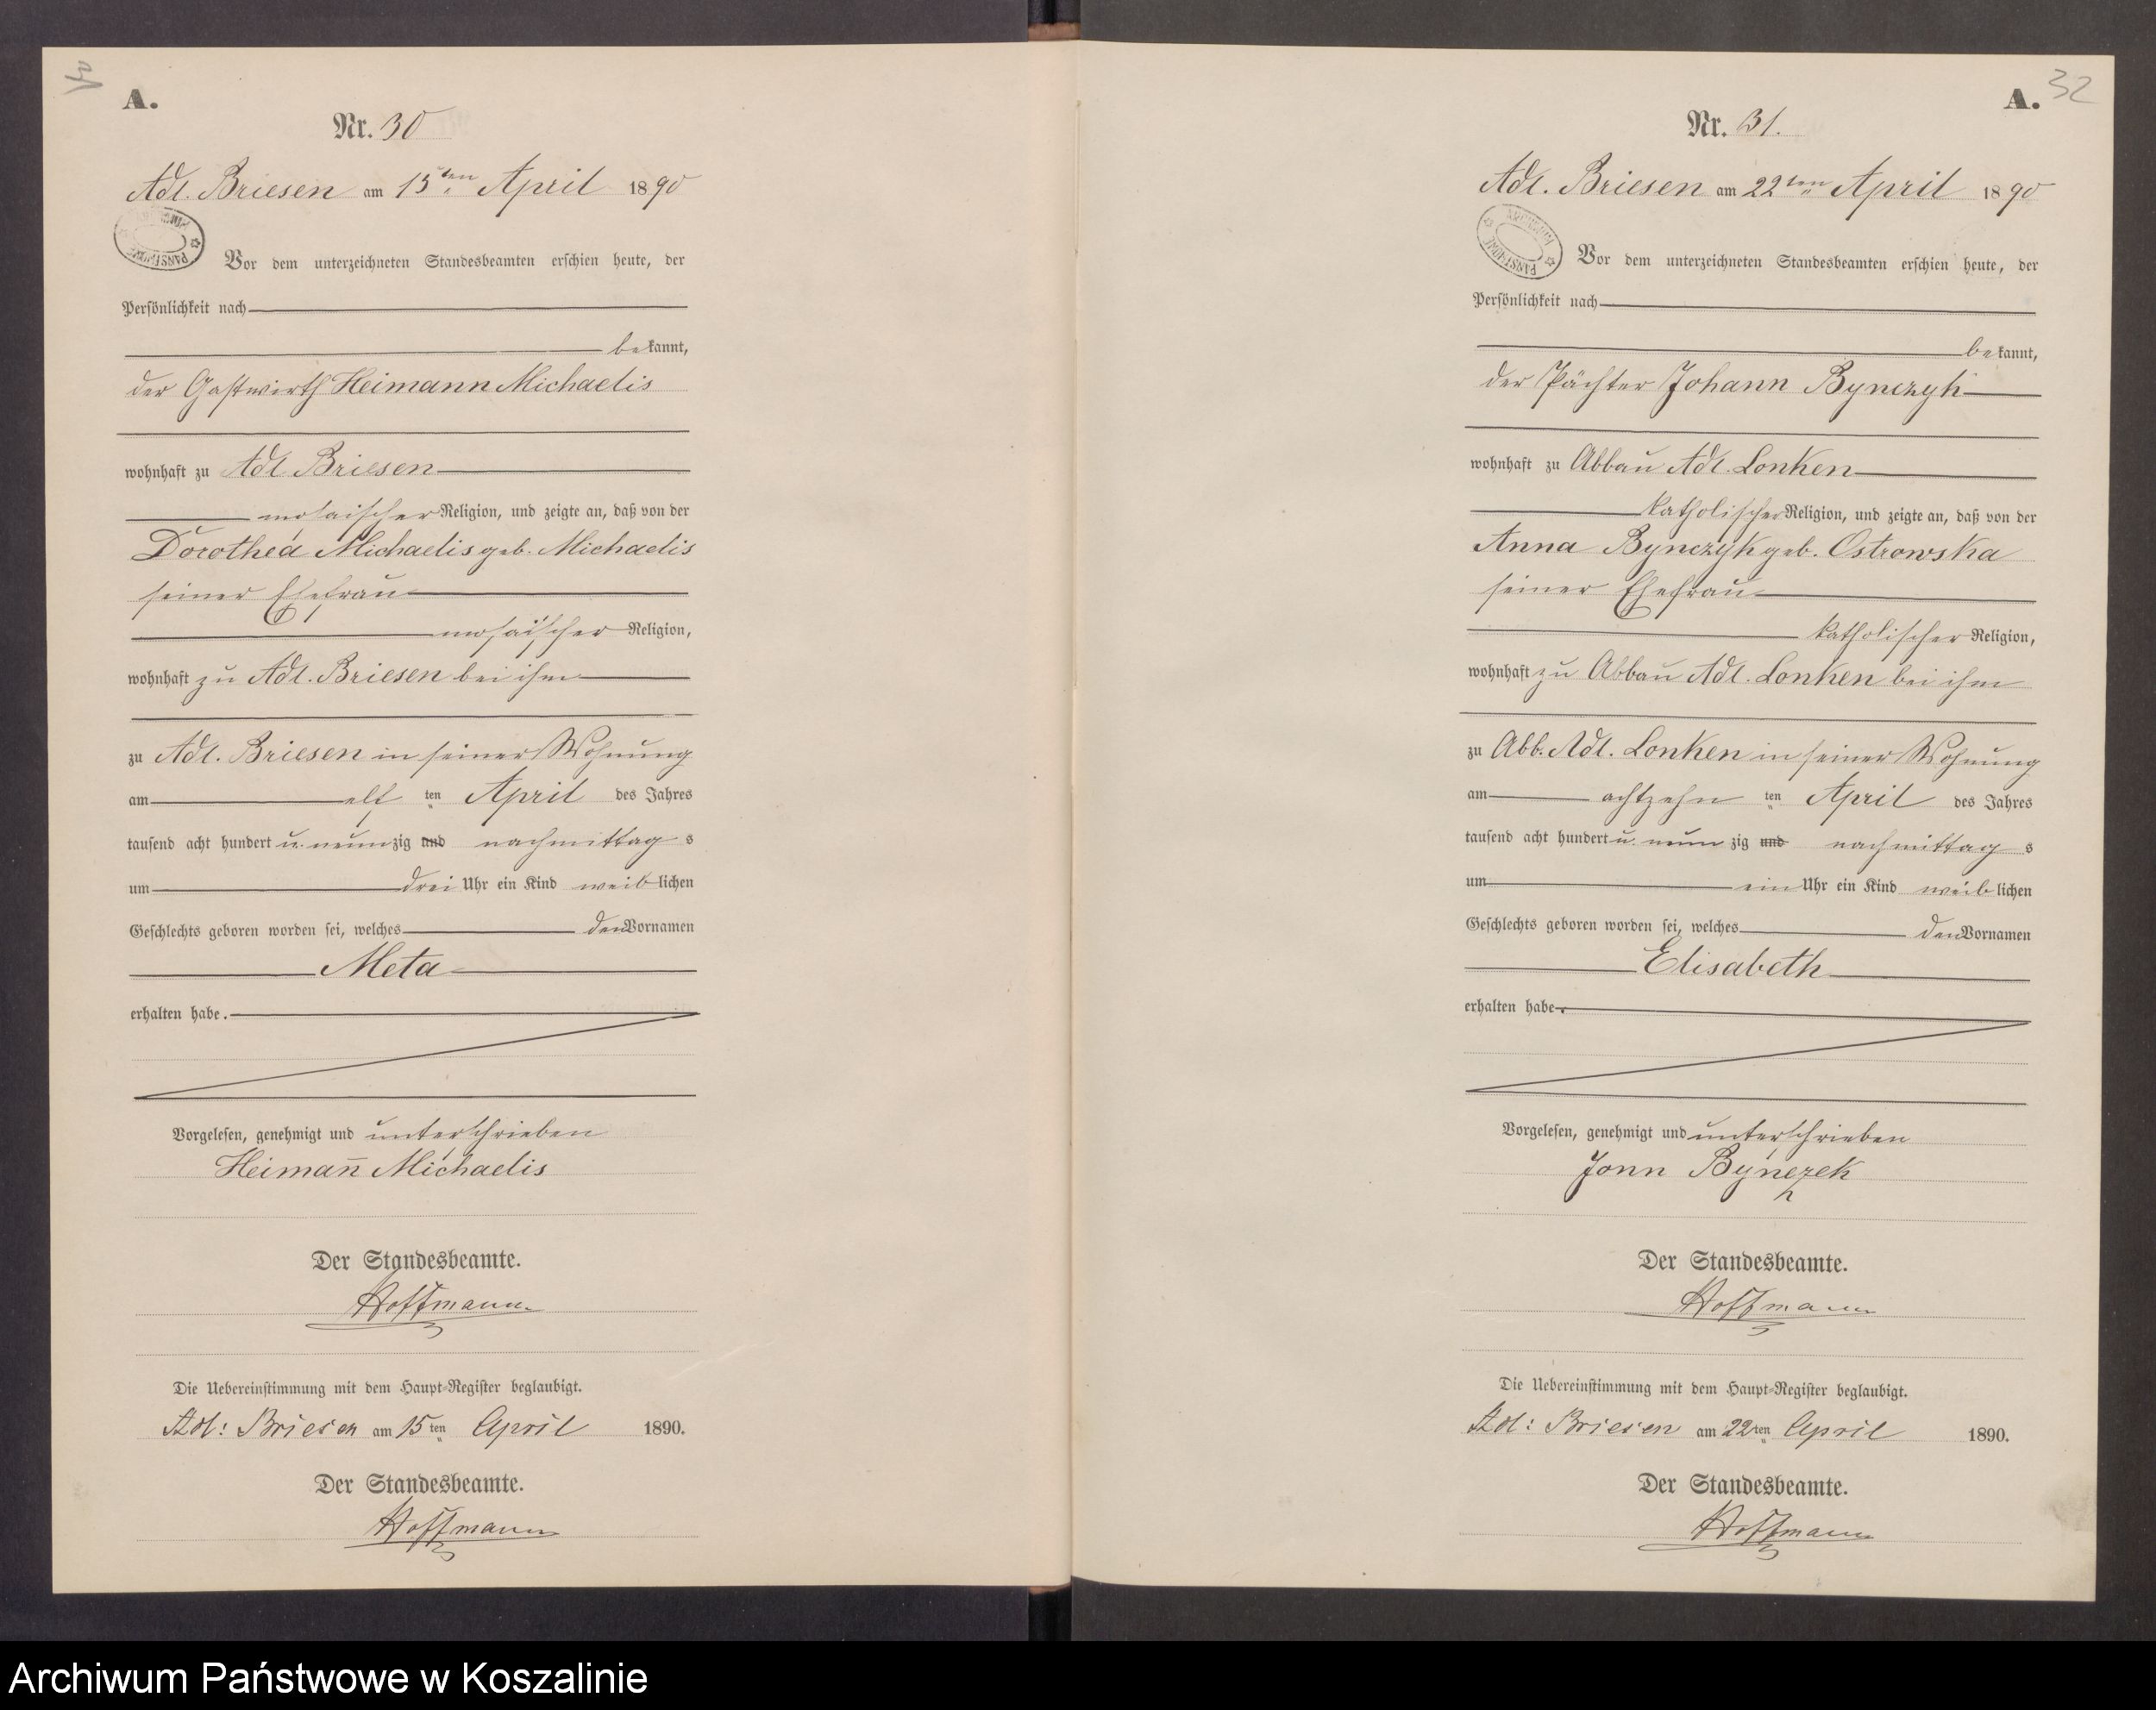 A.
Nr. 30
Adl. Briesen am 15ten April 1890
Vor dem unterzeichneten Standesbeamten erschien heute, der
Persönlichkeit nach
bekannt,
der Gastwirth Heimann Michaelis
wohnhaft zu Adl. Briesen
mosaischer Religion, und zeigte an, daß von der
Dorothea Michaelis geb. Michaelis
seiner Ehefrau
mosaischer Religion,
wohnhaft zu Adl. Briesen bei ihm
zu Adl. Briesen in seiner Wohnung
am elf ten April des Jahres
tausend acht hundert u. neunzig und nachmittag s
um drei Uhr ein Kind weiblichen
Geschlechts geboren worden sei, welches den Vornamen
Meta
erhalten habe.
Vorgelesen, genehmigt und unterschrieben
Heiman̄ Michaelis
Der Standesbeamte.
Hoffmann
Die Uebereinstimmung mit dem Haupt-Register beglaubigt.
Adl: Briesen am 15ten April 1890.
Der Standesbeamte.
Hoffmann
32
A.
Nr. 31.
Adl. Briesen am 22ten April 1890
ARCHIWUM PAŃSTWOWE
Vor dem unterzeichneten Standesbeamten erschien heute, der
Persönlichkeit nach
bekannt,
der Pächter Johann Bynczyk
wohnhaft zu Abbau Adl. Lonken
katholischer Religion, und zeigte an, daß von der
Anna Bynczyk geb. Ostrowska
seiner Ehefrau
katholischer Religion,
wohnhaft zu Abbau Adl. Lonken bei ihm
zu Abb. Adl. Lonken in seiner Wohnung
am achtzehn ten April des Jahres
tausend acht hundert u. neun zig und nachmittag s
um ein Uhr ein Kind weiblichen
Geschlechts geboren worden sei, welches den Vornamen
Elisabeth
erhalten habe.
Vorgelesen, genehmigt und unterschrieben
Jonn Bynczek
Der Standesbeamte.
Hoffmann
Die Uebereinstimmung mit dem Haupt-Register beglaubigt.
Adl: Briesen am 22ten April 1890.
Der Standesbeamte.
Hoffmann
Archiwum Państwowe w Koszalinie